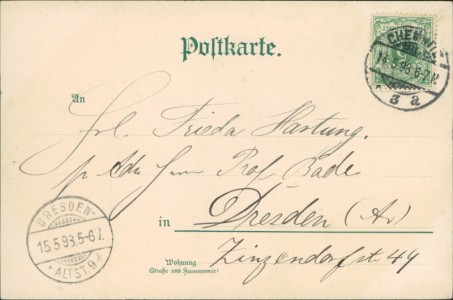 Postkarte.
CHEMNITZ
14.5.98.6-7.N.
3 a
An
Frl. Frieda Hartung.
p. Adr. Herrn Prof. Bade
in Dresden (A.)
Zinzendorfst 49
Wohnung
(Straße und Hausnummer)
DRESDEN-
15.5.98.5-6V.
* ALTST. 9 *